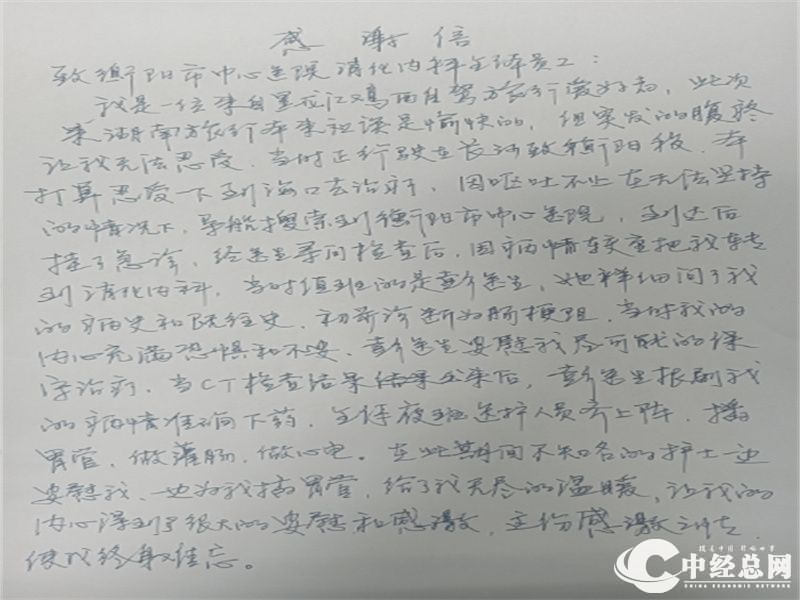 感谢信
致衡阳市中心医院消化内科全体员工：
我是一位来自黑龙江双鸭山自驾旅行爱好者，此次
来湖南旅行本来应该是愉快的，但突发的腹疼
让我无法忍受。当时正行驶在长沙致衡阳段，本
打算忍受一下到海口去治疗，因呕吐不止在无法坚持
的情况下，导航搜索到衡阳市中心医院，到达后
挂了急诊，经医生寻问检查后，因病情较重把我转
到消化内科，当时值班的是彭医生，她详细问了我
的病史和既往史，初步诊断为肠梗阻，当时我的
内心充满恐惧和不安，彭医生安慰我尽可能的保
守治疗，当CT检查结果出来后，彭医生根剧我
的病情准确下药，全体夜班医护人员齐上阵，插
胃管，做灌肠，做心电。在此其间不知名的护士一边
安慰我，一边为我插胃管，给了我无尽的温暖，让我的
内心得到了很大的安慰和感激，这份感激
使我终身难忘。
中经总网
CHINA ECONOMIC NETWORK